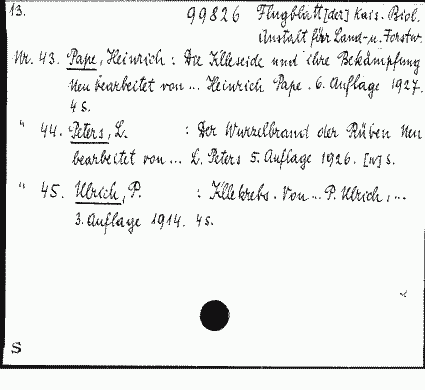 13. 99826 Flugblatt [der] Kais. Biol.
Anstalt für Land-, u. Forstw.
Nr. 43. Pape, Heinrich : Die Kleeseide und ihre Bekämpfung
Neu bearbeitet von ... Heinrich Pape. 6. Auflage 1927.
4 S.
" 44. Peters, L. : Der Wurzelbrand der Rüben Neu
bearbeitet von ... L. Peters 5. Auflage 1926. [4] S.
" 45. Ulrich, P. : Kleekrebs. Von ... P. Ulrich, ...
3. Auflage 1914. 4 S.
S